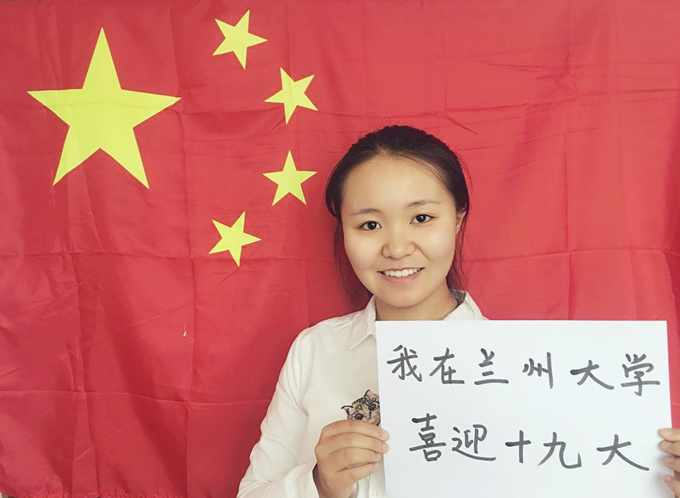 我在兰州大学
喜迎十九大